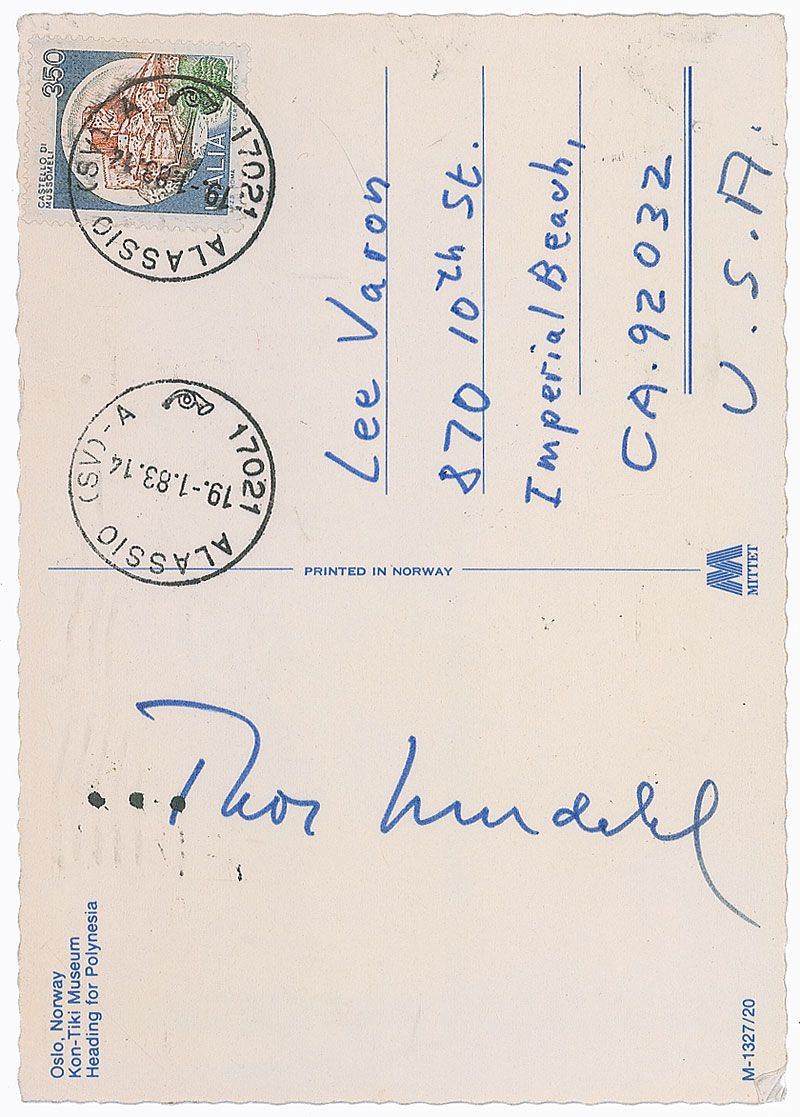 Oslo, Norway
Kon-Tiki Museum
Heading for Polynesia
M-1327/20
Thor Heyerdahl
PRINTED IN NORWAY
MITTET
350
CASTELLO DI
MUSSOMELI
ITALIA
17021 ALASSIO (SV) - A
19.-1.83.14
17021 ALASSIO (SV) - A
19.-1.83.14
Lee Varon
870 10th St.
Imperial Beach,
CA. 92032
U.S.A.